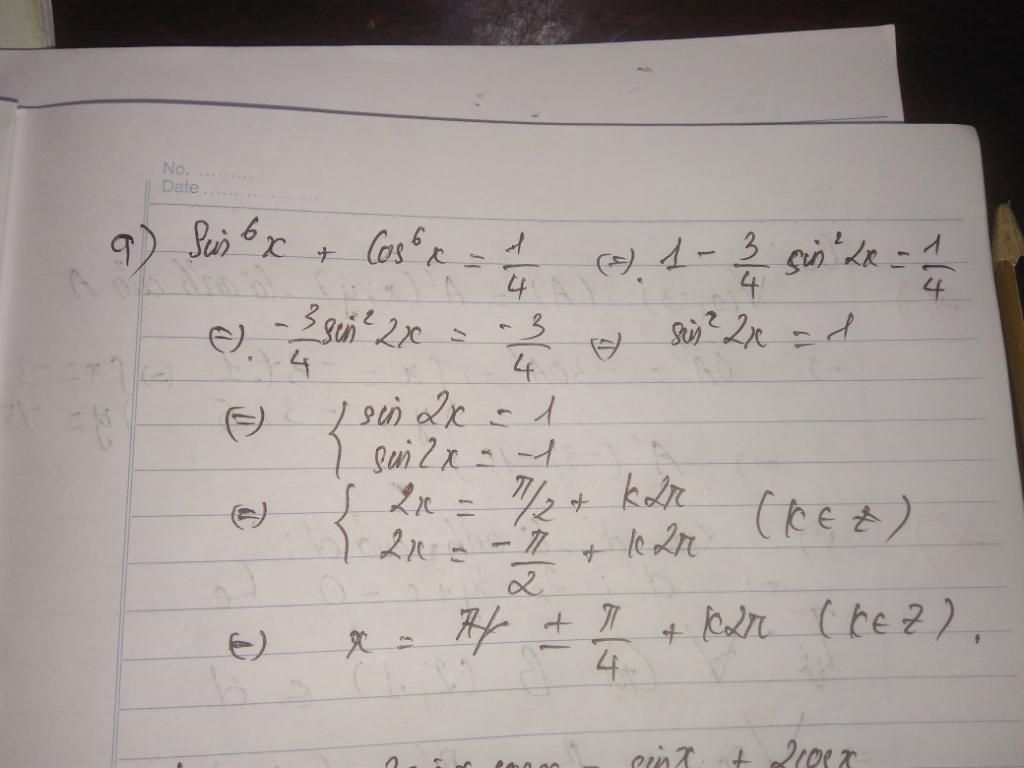 No. ..........
Date ..................
a) Sin⁶x + Cos⁶x = 1/4 (=). 1 - 3/4 sin²2x = 1/4
(=). -3/4 sin²2x = -3/4 (=) sin²2x = 1
(=) { sin 2x = 1
sin 2x = -1
(=) { 2x = π/2 + k2π (k ∈ Z)
2x = -π/2 + k2π
(=) x = ± π/4 + k2π (k ∈ Z).
sinx + 2cosx